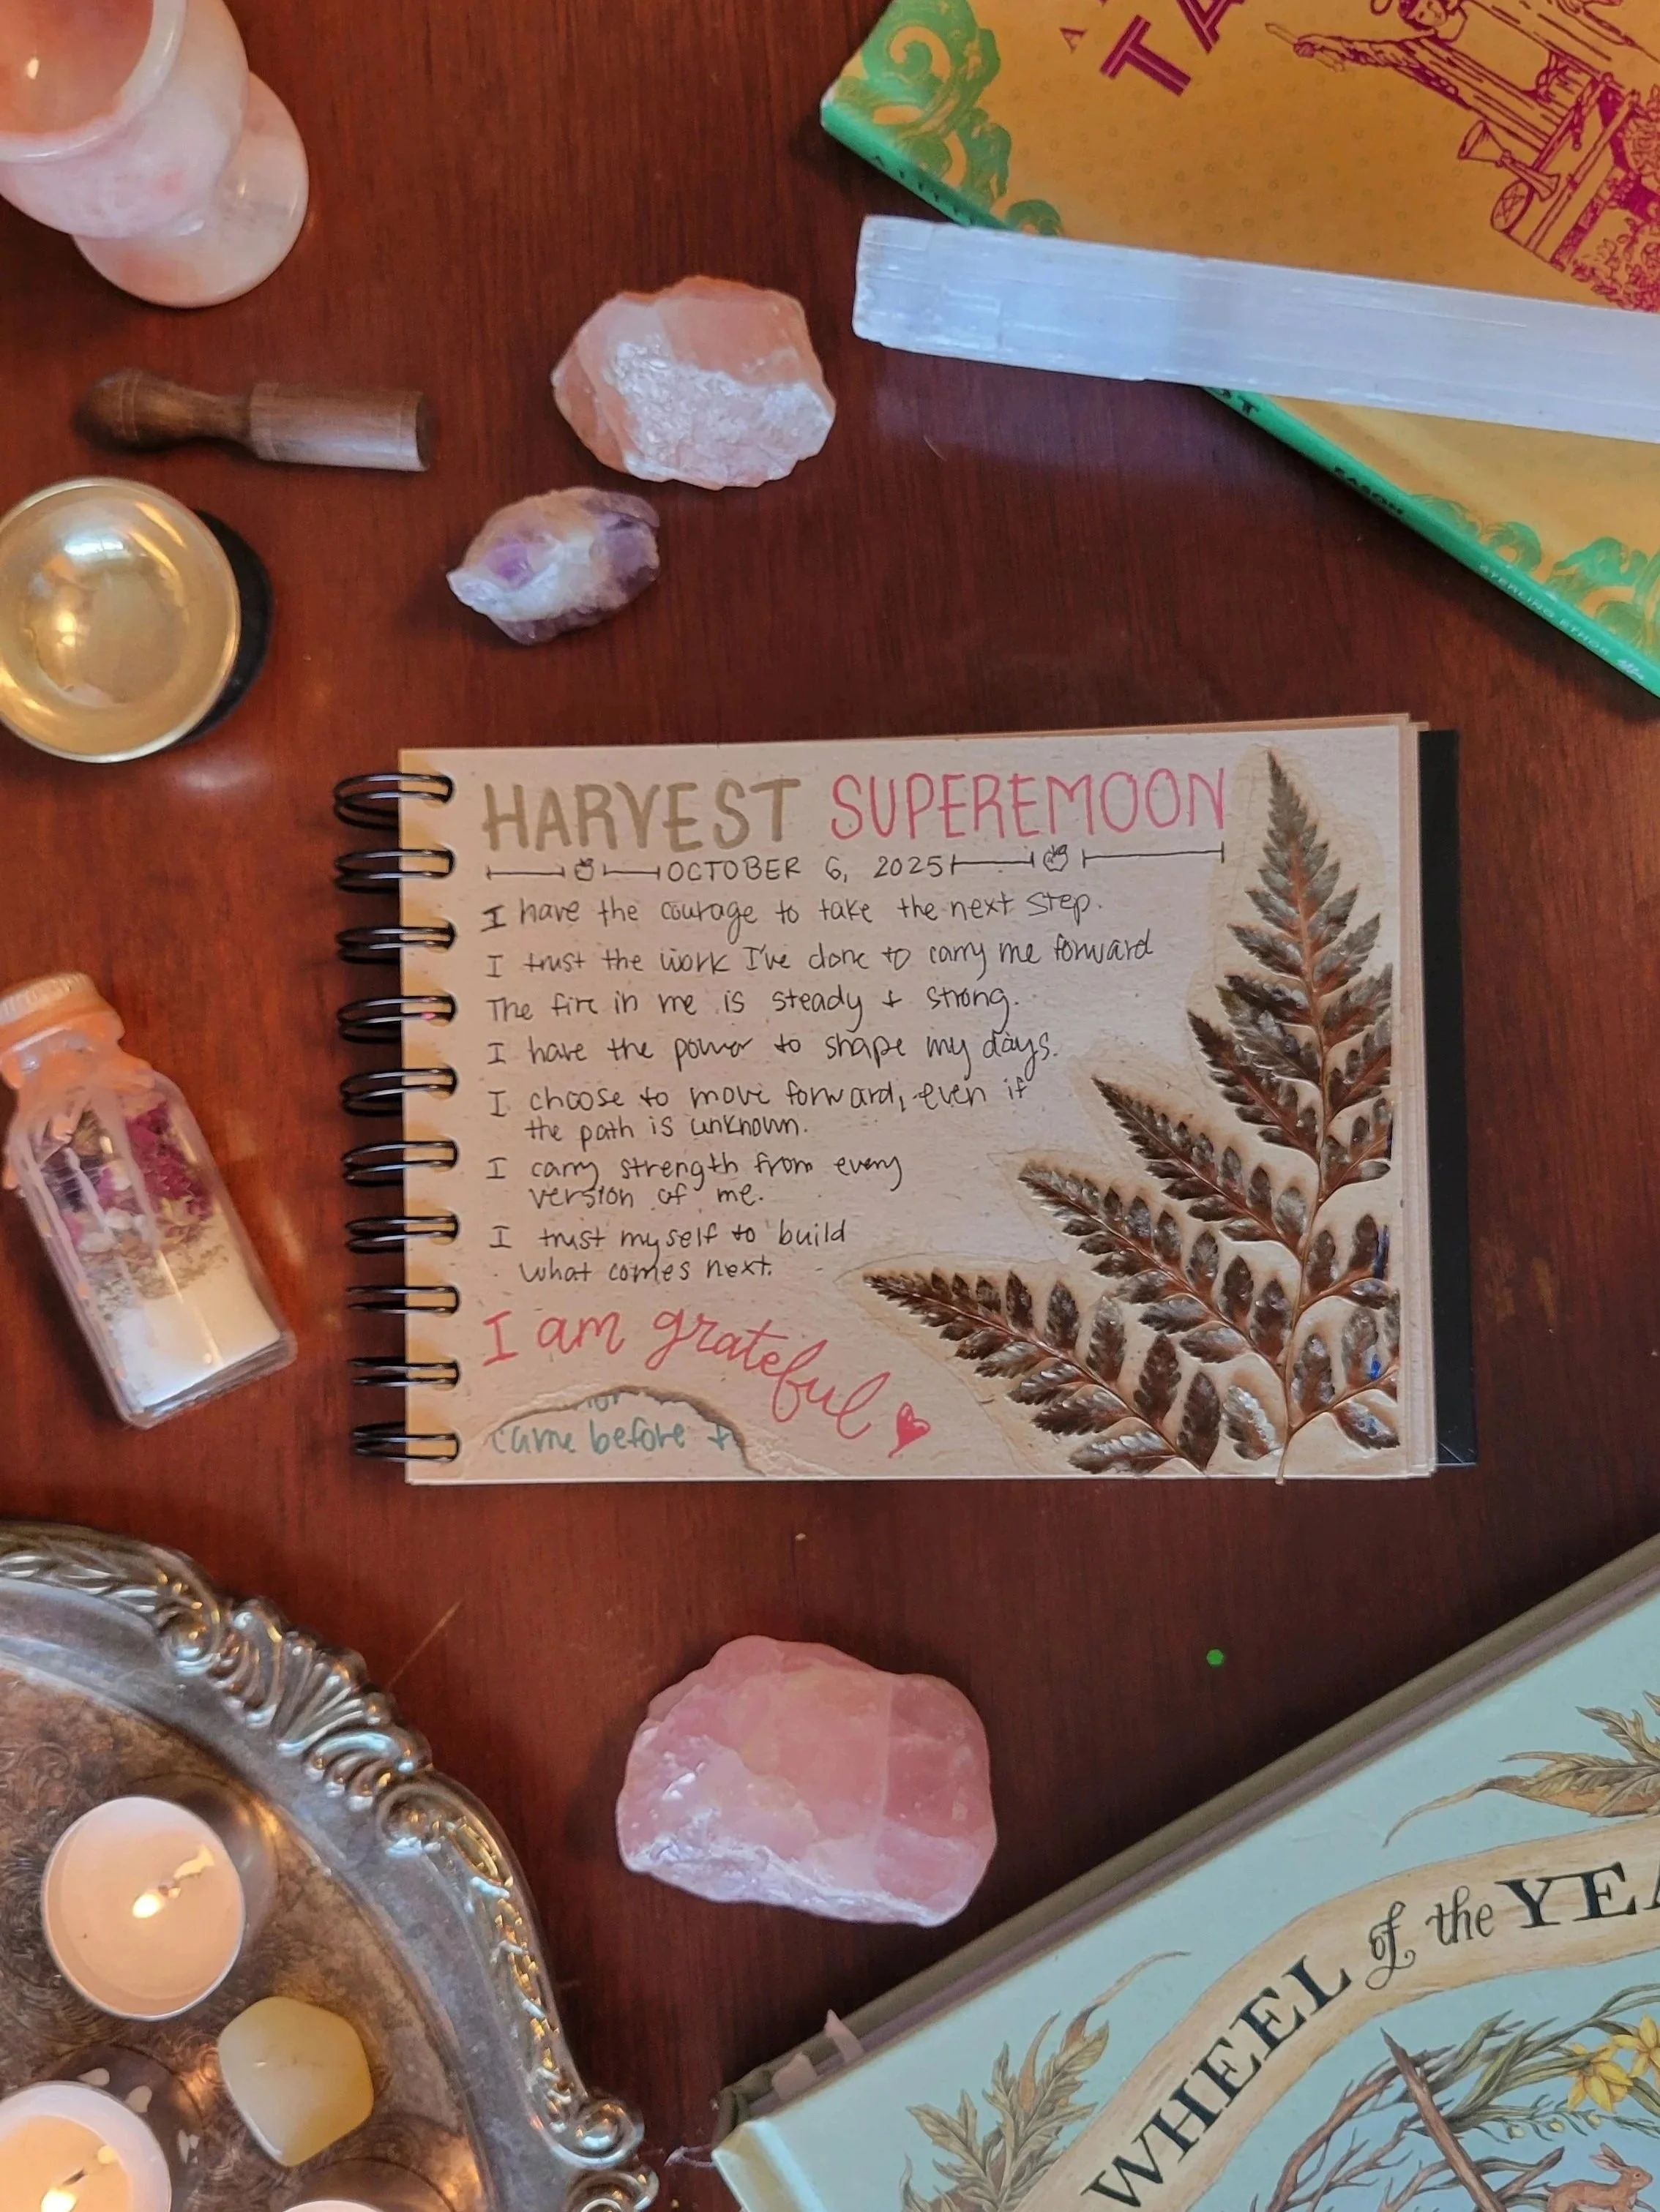 A
TA
A LITTLE
EASON
STERLING ETHOS
HARVEST SUPEREMOON
OCTOBER 6, 2025
I have the courage to take the next step.
I trust the work I've done to carry me forward
The fire in me is steady + strong.
I have the power to shape my days.
I choose to move forward, even if
the path is unknown.
I carry strength from every
version of me.
I trust myself to build
what comes next.
I am grateful
came before +
WHEEL of the YEA